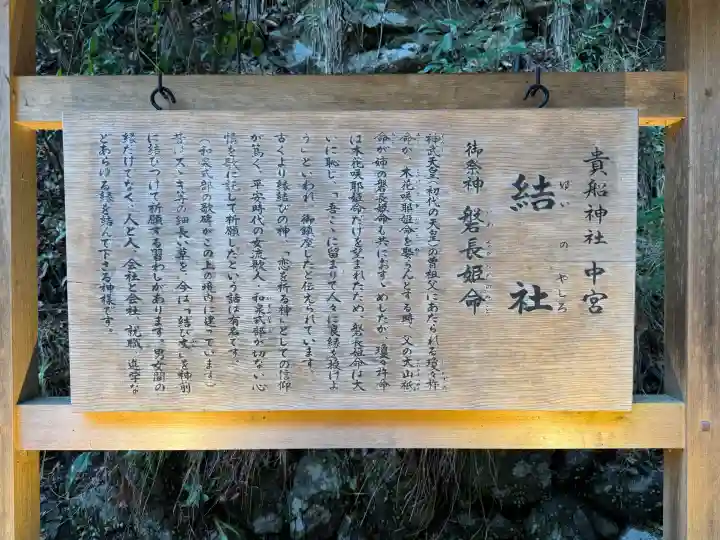 貴船神社 中宮
結社
ゆいのやしろ
御祭神 磐長姫命
いわながひめのみこと
神武天皇(初代の天皇)の曽祖父にあたられる瓊々杵
命が、木花咲耶姫命を娶らんとする時、父の大山祇
命が姉の磐長姫命も共におすゝめしたが、瓊々杵命
は木花咲耶姫命だけを望まれたため、磐長姫命は大
いに恥じ、「吾こゝに留まりて人々に良縁を授けよ
う」といわれ、御鎮座したと伝えられています。
古くより縁結びの神、「恋を祈る神」としての信仰
が篤く、平安時代の女流歌人・和泉式部が切ない心
情を歌に託して祈願したという話は有名です。
(和泉式部の歌碑がこの奥の境内に建っています)
昔はスゝき等の細長い草を、今は「結び文」を神前
に結びつけて祈願する習わしがあります。男女間の
縁だけでなく、人と人、会社と会社、就職、進学な
どあらゆる縁を結んで下さる神様です。